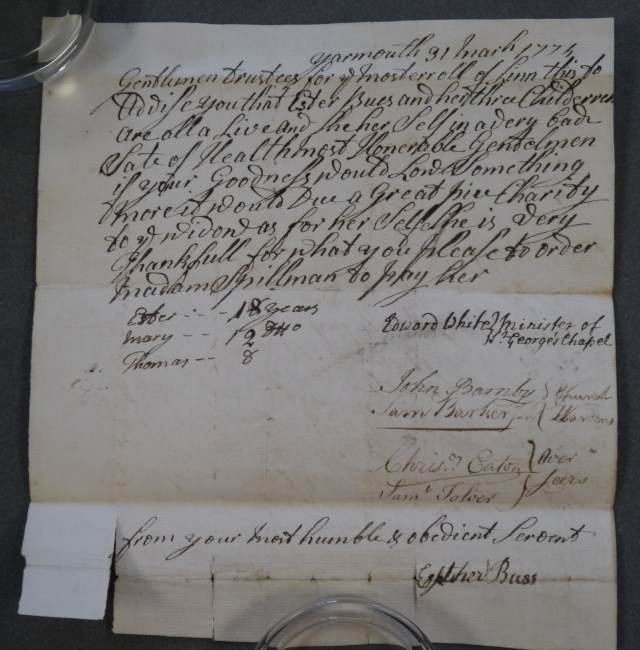 yarmouth 31 march 1774
Gentlemen trustees for ye mosterroll of Linn this to
Addise you that Ester Bues and her three Childerren
are all a Live and she her Self in a very bade
State of Health most Honerable Gentelmen
if your Goodness would Low Something
more it would Bue a Great pice Charity
to ye widow as for her Self She is very
Thankfull for what you please to order
madam Spillman to pay her
Ester 18 years
Mary 12 ditto
Thomas 8
Edward White Minister of
St George's Chapel
John Barnby } Church
Sam Barker } Wardens
Chrisr. Eaton } Over
Saml Tolver } seers
from your most humble & obedient Servant
Esther Buss